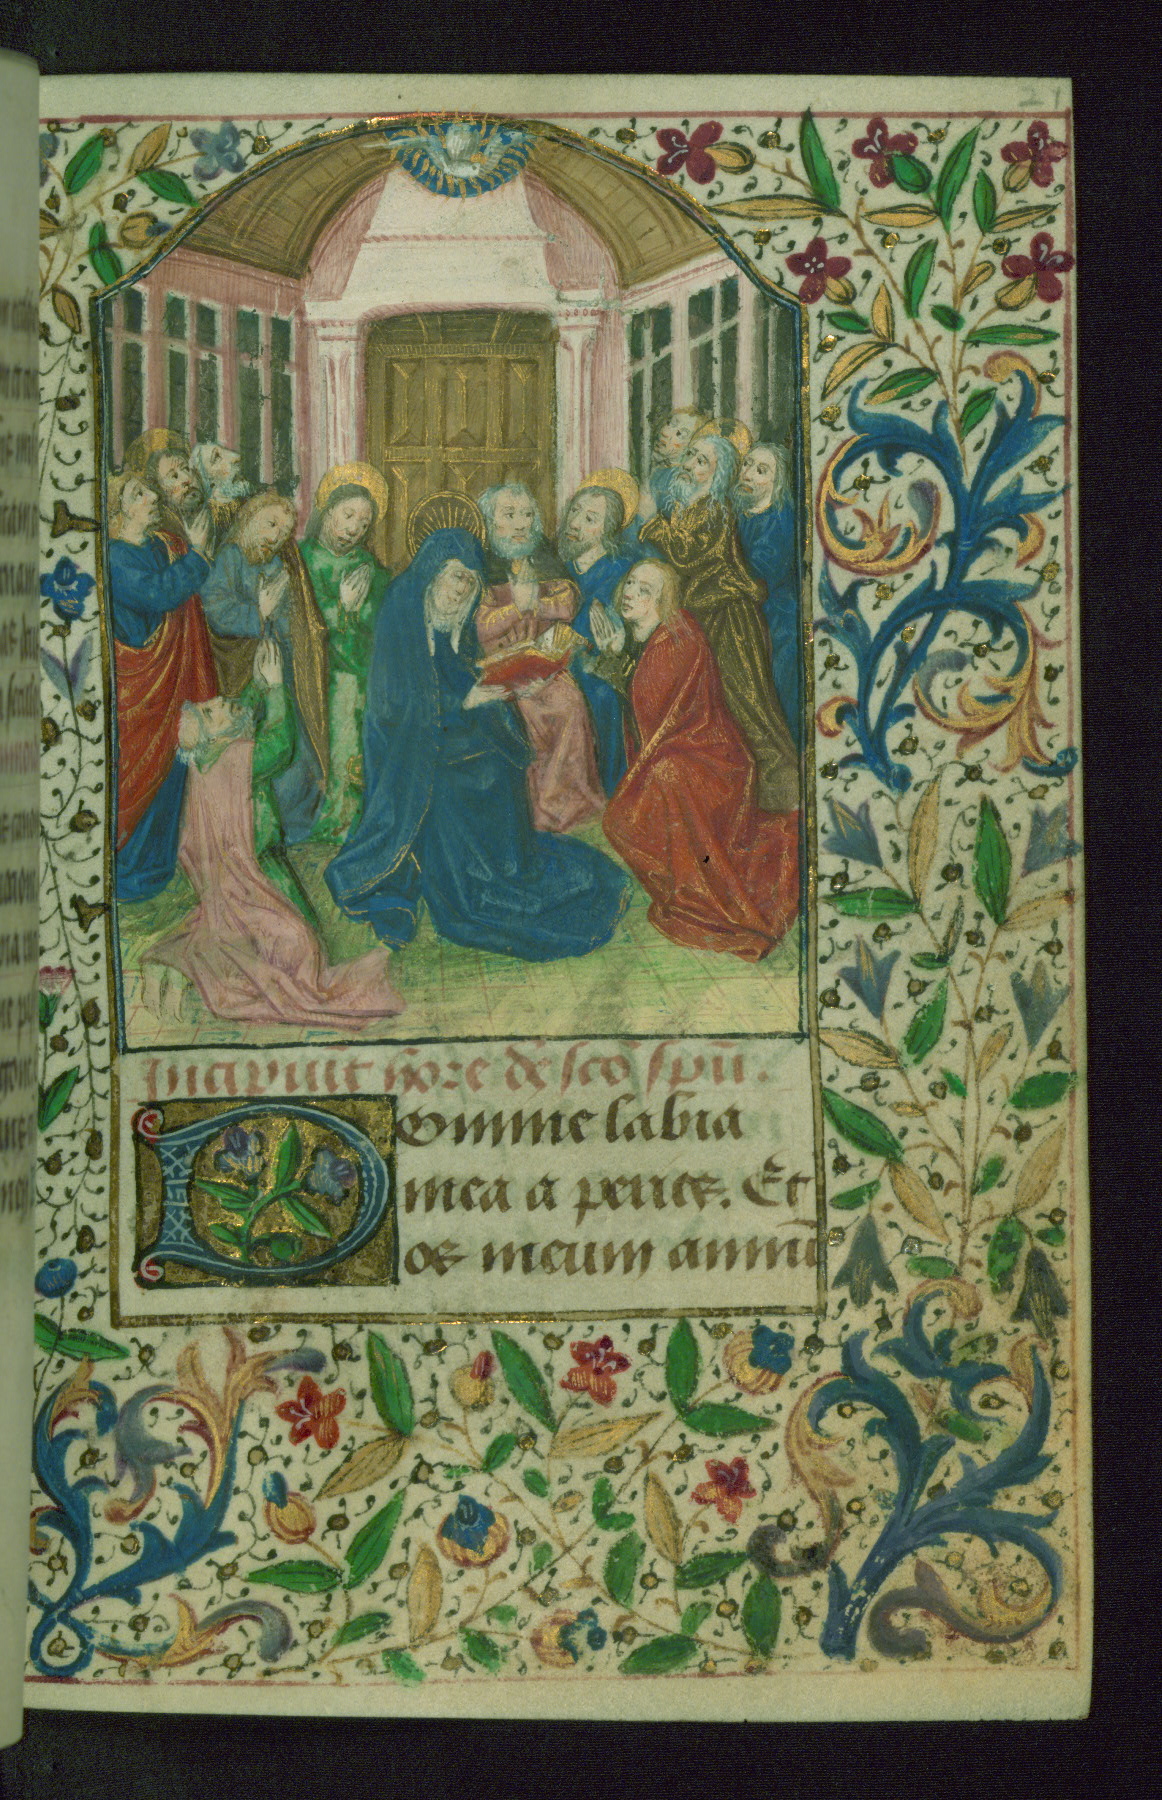 21
Incipiu̅t hore de̅ sco̅ spu̅.
Domine labia
mea aperies. Et
os meum annu̅